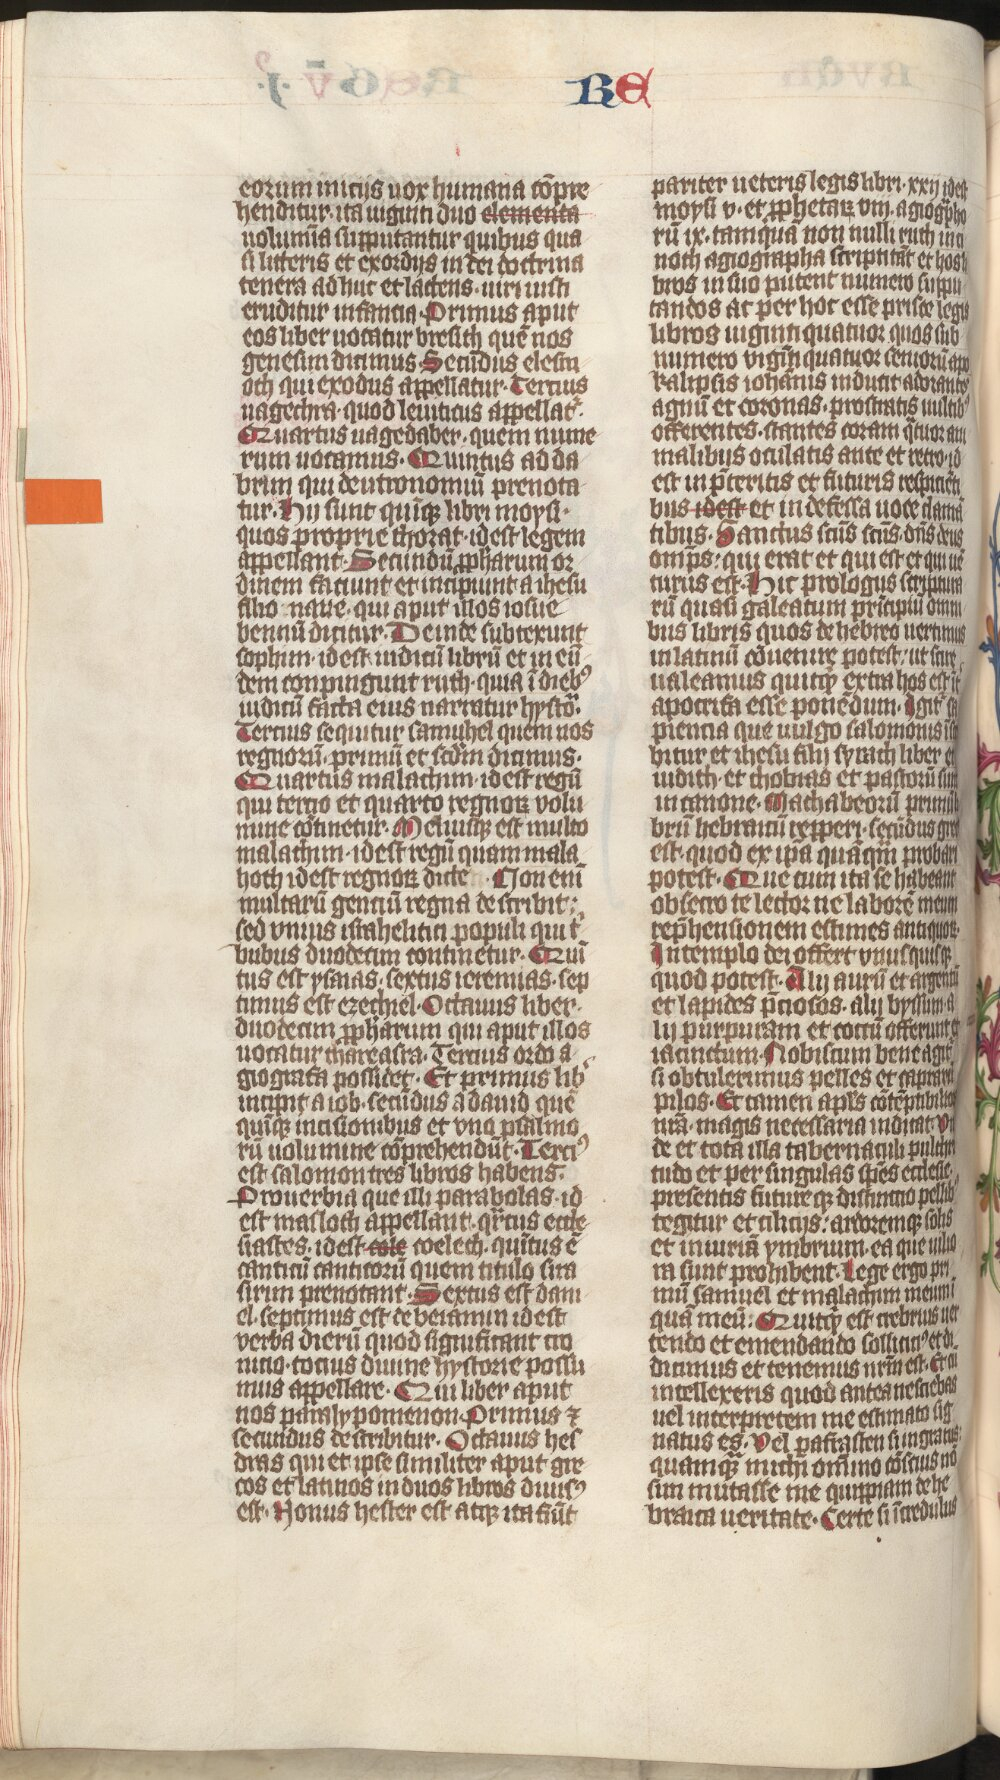 RE
eorum iniciis uox humana cōpre
henditur. ita uiginti duo elementa
uolumīa supputantur quibus qua
si litteris et exordijs in dei doctrina
tenera ad huc et lactens. uiri iusti
eruditur infancia. Primus aput
eos liber uocatur bresith quē nos
genesim dicimus. Secūdus elesm
oth qui exodus appellatur. Tercius
uagechra. quod leuiticus appellat᷑.
Quartus uagedaber. quem nume
rum uocamus. Quintus ad da
brim qui deutronomiū prenota
tur. Hii sunt quīqꝫ libri moysi.
quos proprie thorat. id est legem
appellant. Secundū ꝓpharum or
dinem faciunt et incipiunt a ihesu
filio naue. qui aput illos iosue
bennū dicitur. Deinde subtexunt
sophim. id est iudicū librū et in eū
dem conpingunt ruth. quia ī dieb᷒
iudicū facta eius narratur hystō.
Tercius sequitur samuhel quem nos
regnorū. primū et scdm̄ dicimus.
Quartus malachim. id est regū
qui tercio et quarto regnoꝝ volu
mine cōtinetur. Meliusqꝫ est multo
malachim. id est regū quam mala
hoth id est regnoꝝ dice. Non enī
multarū genciū regna describit:
sed vnius israhelitici populi qui t᷑
bubus duodecim continetur. Quī
tus est ysaias. sextus ieremias. sep
timus est ezechiel. Octauus liber.
duodecim ꝓpharum qui aput illos
uocatur thareasra. Tercius ordo a
giografa possidet. Et primus lib᷑
incipit a iob. secūdus a dauid quē
quīqꝫ incisionibus et vno psalmo
rū uolumine cōprehendūt. Terci᷒
est salomon tres libros habens.
Prouerbia que illi parabolas. id
est masloth appellant. qr̄tus eccle
siastes. id est cole coelech. quītus ē
canticū canticorū quem titulo sira
sirim prenotant. Sextus est dani
el. septimus est de beiamin id est
verba dierū quod significant cro
nicio. tocius diuine hystorie possu
mus appellare. Qui liber aput
nos paralypomenon. Primus ⁊
secundus describitur. Octauus hes
dras qui et ipse similiter aput gre
cos et latinos in duos libros diuis᷒
est. Nonus hester est atqꝫ ita fiūt
pariter ueteris legis libri. xxij id est
moysi v. et ꝓphetaꝝ viij. agiogᵃpho
rū ix. tamquā non nulli ruth
noth agiographa scriptitāt et hos
bros in suo putent numero suppu
tandos ac per hoc esse prisce legis
libros uiginti quatuor quos sub
numero viginti quatuor seniorū apo
kalipsis iohānis inducit adorantes
agnū et coronas. prostratis uultib᷒
offerentes. stantes coram qᵃtuor ani
malibus oculatis ante et retro. id
est in p̄teritis et futuris respicientib
bus id est et in defessa uoce clamā
tibus. Sanctus scūs scūs. dn̄s deus
omp̄s. qui erat et qui est et qui uē
turus est. Hic prologus scriptura
rū quasi galeatum prīcipiū omni
bus libris quos de hebreo uertimus
in latinū cōuenire potest. ut scire
ualeamus quitqᵈ extra hos est īt
apocrifa esse ponēdum. Igit᷑ sa
piencia que uulgo salomonis
bitur et ihesu filij syrach liber et
iudith. et thobias et pastorū sūt
in canone. Machabeorū primū li
brū hebraicū repperi. secūdus gre
est. quod ex ip̄a quāqm̄ probari
potest. Que cum ita se habeant
obsecro te lector ne laborē meum
rep̄hensionem estimes antiquoꝝ.
In templo dei offert vnusquisqꝫ
quod potest. Alij aurū et argentū
et lapides p̄ciosos. alij byssum. a
lij purpuram et coccū offerunt
iacinctum. Nobiscum bene agit᷑
si obtulerimus pelles et caprarū
pilos. Et tamen apl̄s cōtēptibilio
nrā. magis necessaria iudicat. Vn
de et tota illa tabernaculi pulchri
tudo et per singulas spēs ecclesie.
presentis futureqꝫ distinctio pellib᷒
tegitur et cilicijs: ardoremqꝫ solis
et iniuriā ymbrium. ea que uilio
ra sunt prohibent. Lege ergo pri
mū samuel et malachim meum.
quā meū. Quitqᵈ est crebrius uer
tendo et emendando solliciti᷒ et di
dicimus et tenemus nrm̄ est. Et cū
intellexeris quod antea nesciebas
uel interpretem me estimato sig
natus es. Vel pafrasten si ingratus.
quamqᵃ michi omīno cōscius nō
sim mutasse me quippiam de he
braica ueritate. Certe si īcredulus